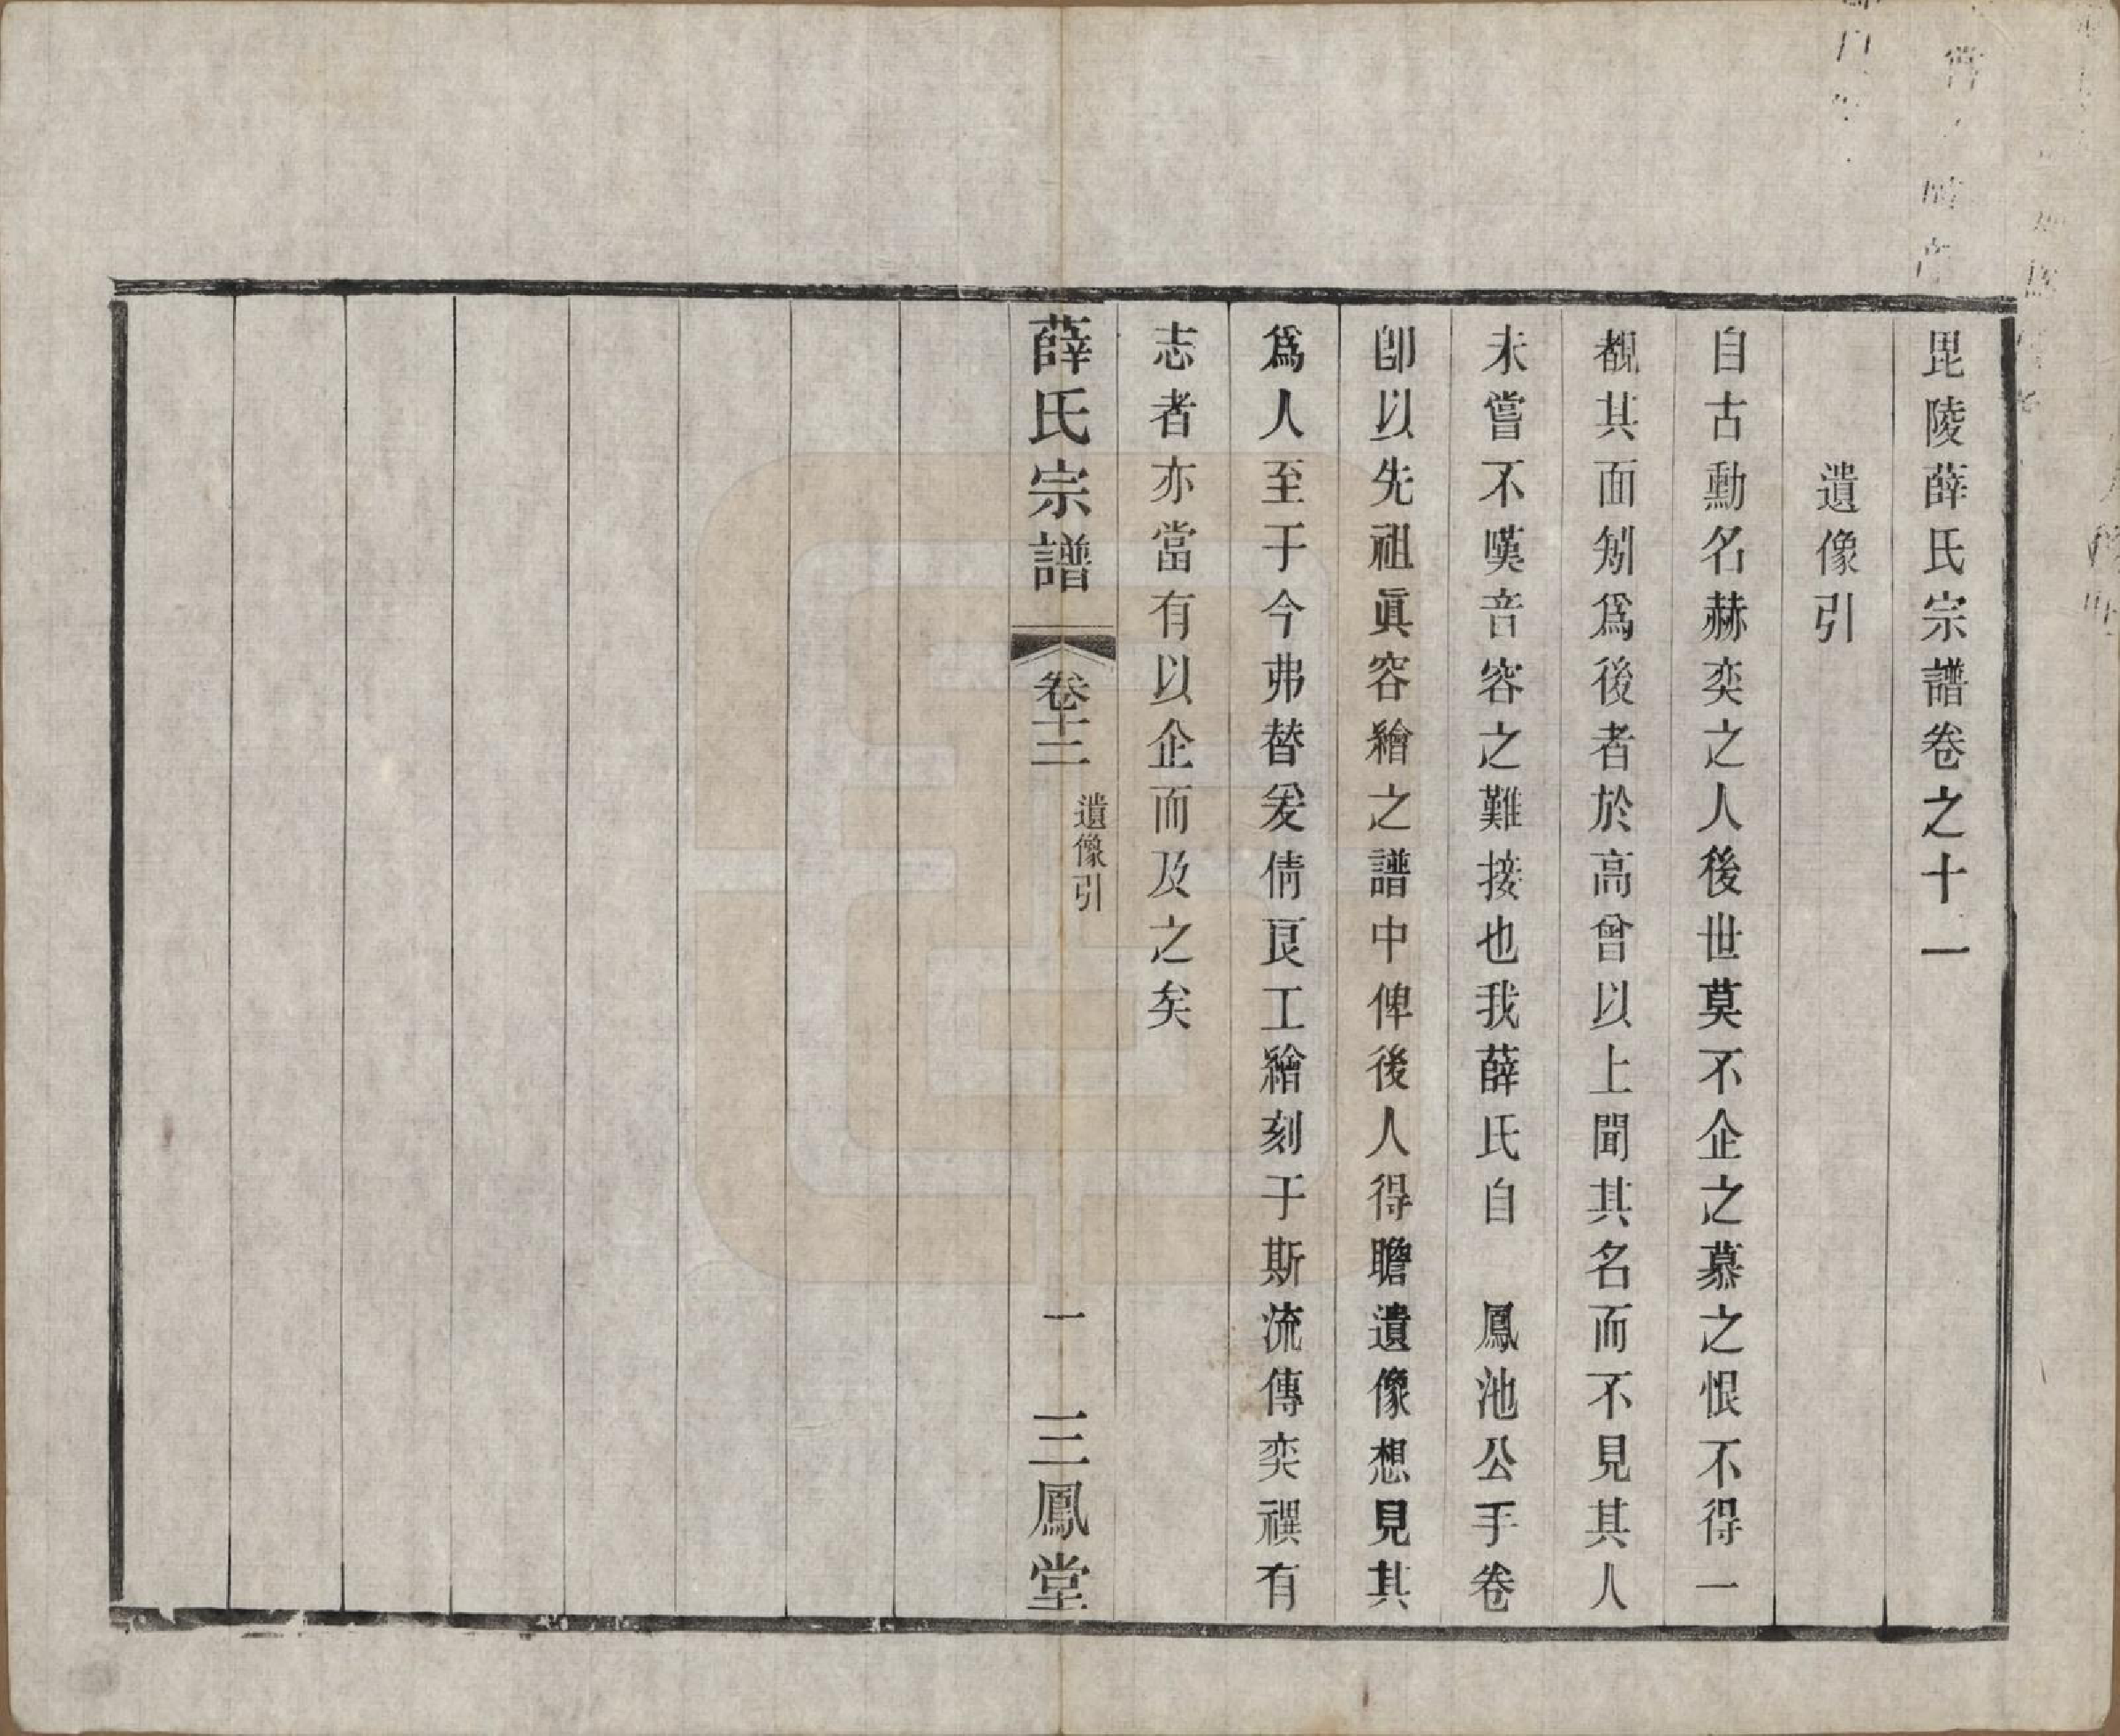 毘陵薛氏宗譜卷之十一
遺像引
自古勳名赫奕之人後世莫不企之慕之恨不得一
覩其面矧爲後者於高曾以上聞其名而不見其人
未嘗不嘆音容之難接也我薛氏自　鳳池公手卷
卽以先祖眞容繪之譜中俾後人得瞻遺像想見其
爲人至于今弗替爰倩良工繪刻于斯流傳奕禩有
志者亦當有以企而及之矣
薛氏宗譜　卷十二　遺像引　一　三鳳堂